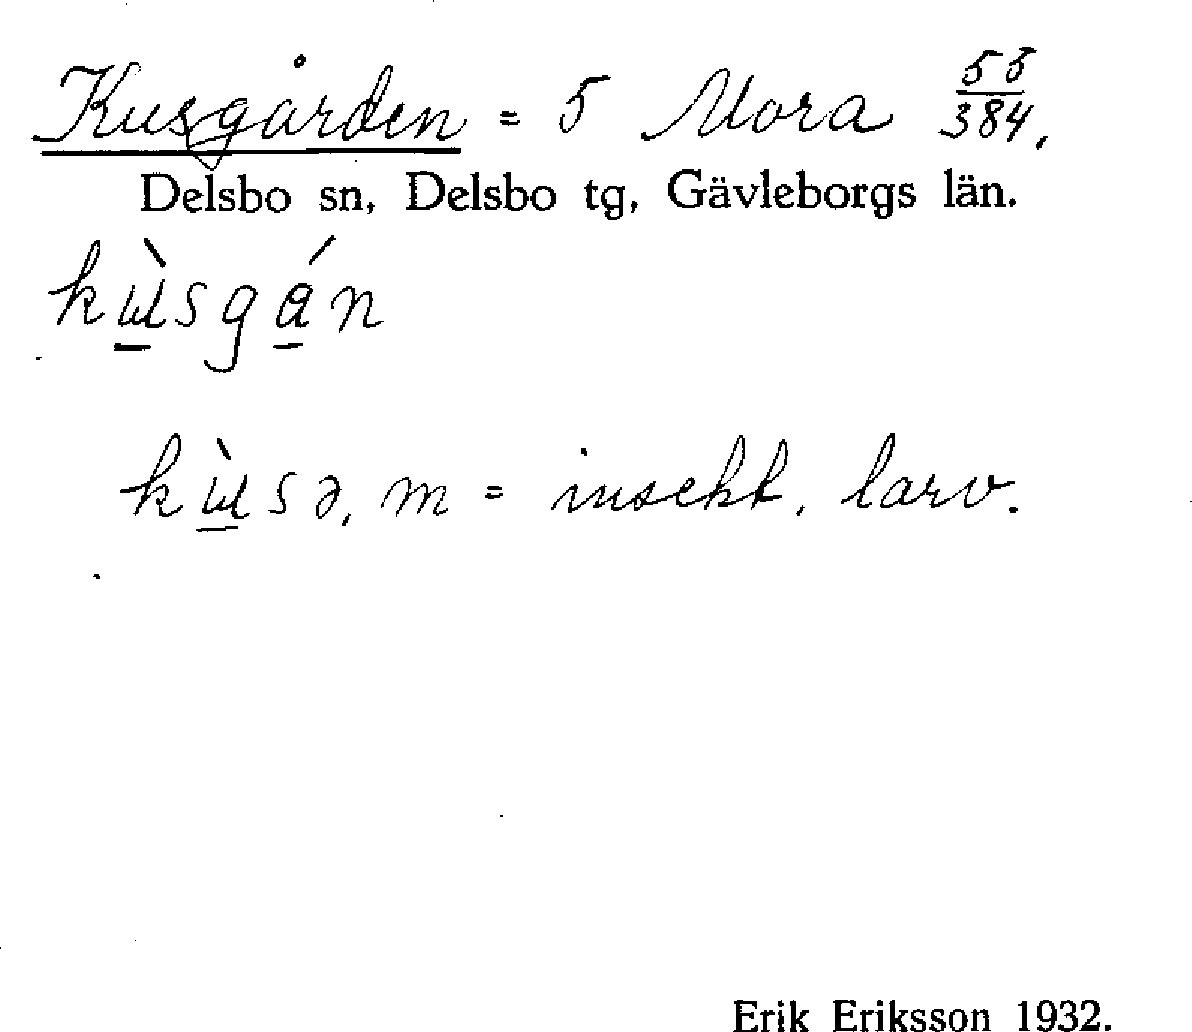 Kusgården = 5 Mora 55/384.
Delsbo sn, Delsbo tg, Gävleborgs län.
kɯ̀sgán
kɯ̀sə, m = insekt, larv.
Erik Eriksson 1932.